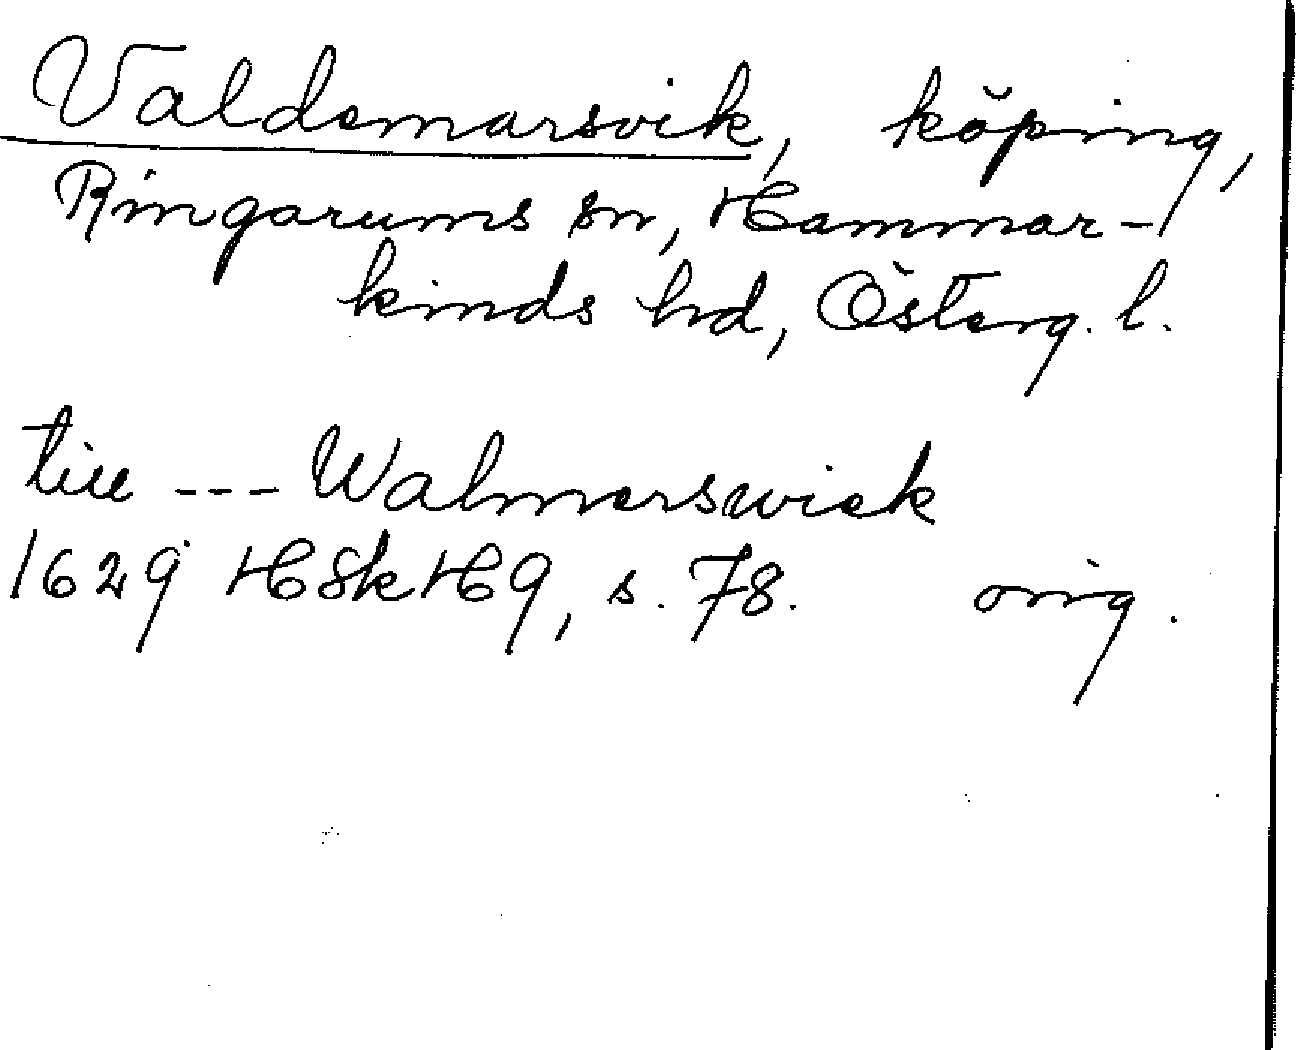 Valdemarsvik, köping,
Ringarums sn, Hammar-
kinds hd, Österg. l.
till --- Walmerswick
1629 HSkH9, s. 78. orig.